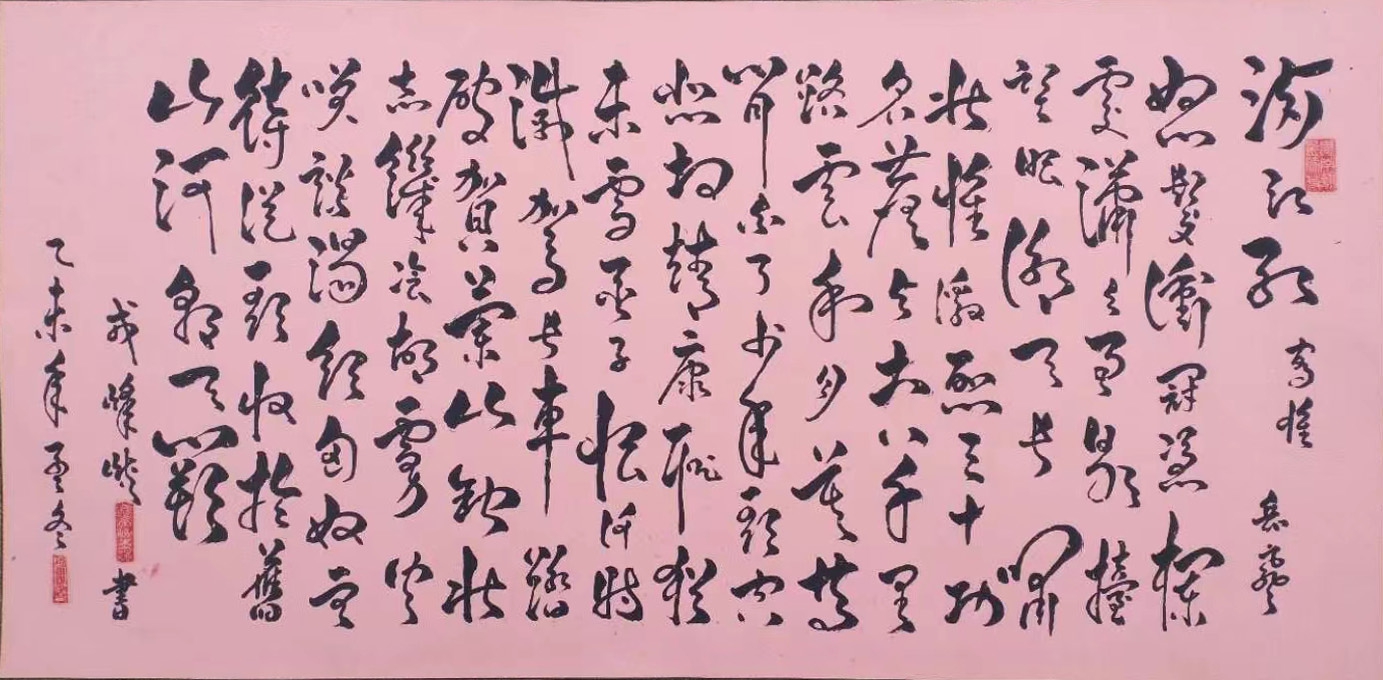 滿江紅 寫懷 岳飛
怒髮衝冠憑欄
處瀟々雨歇擡
望眼仰天長嘯
壯懷激烈三十功
名塵與土八千里
路雲和月莫等
閒白了少年頭空
悲切靖康恥猶
未雪臣子恨何時
滅駕長車踏
破賀蘭山缺壯
志饑餐胡虜肉
笑談渴飲匈奴血
待從頭收拾舊
山河朝天闕
書
乙未年孟冬